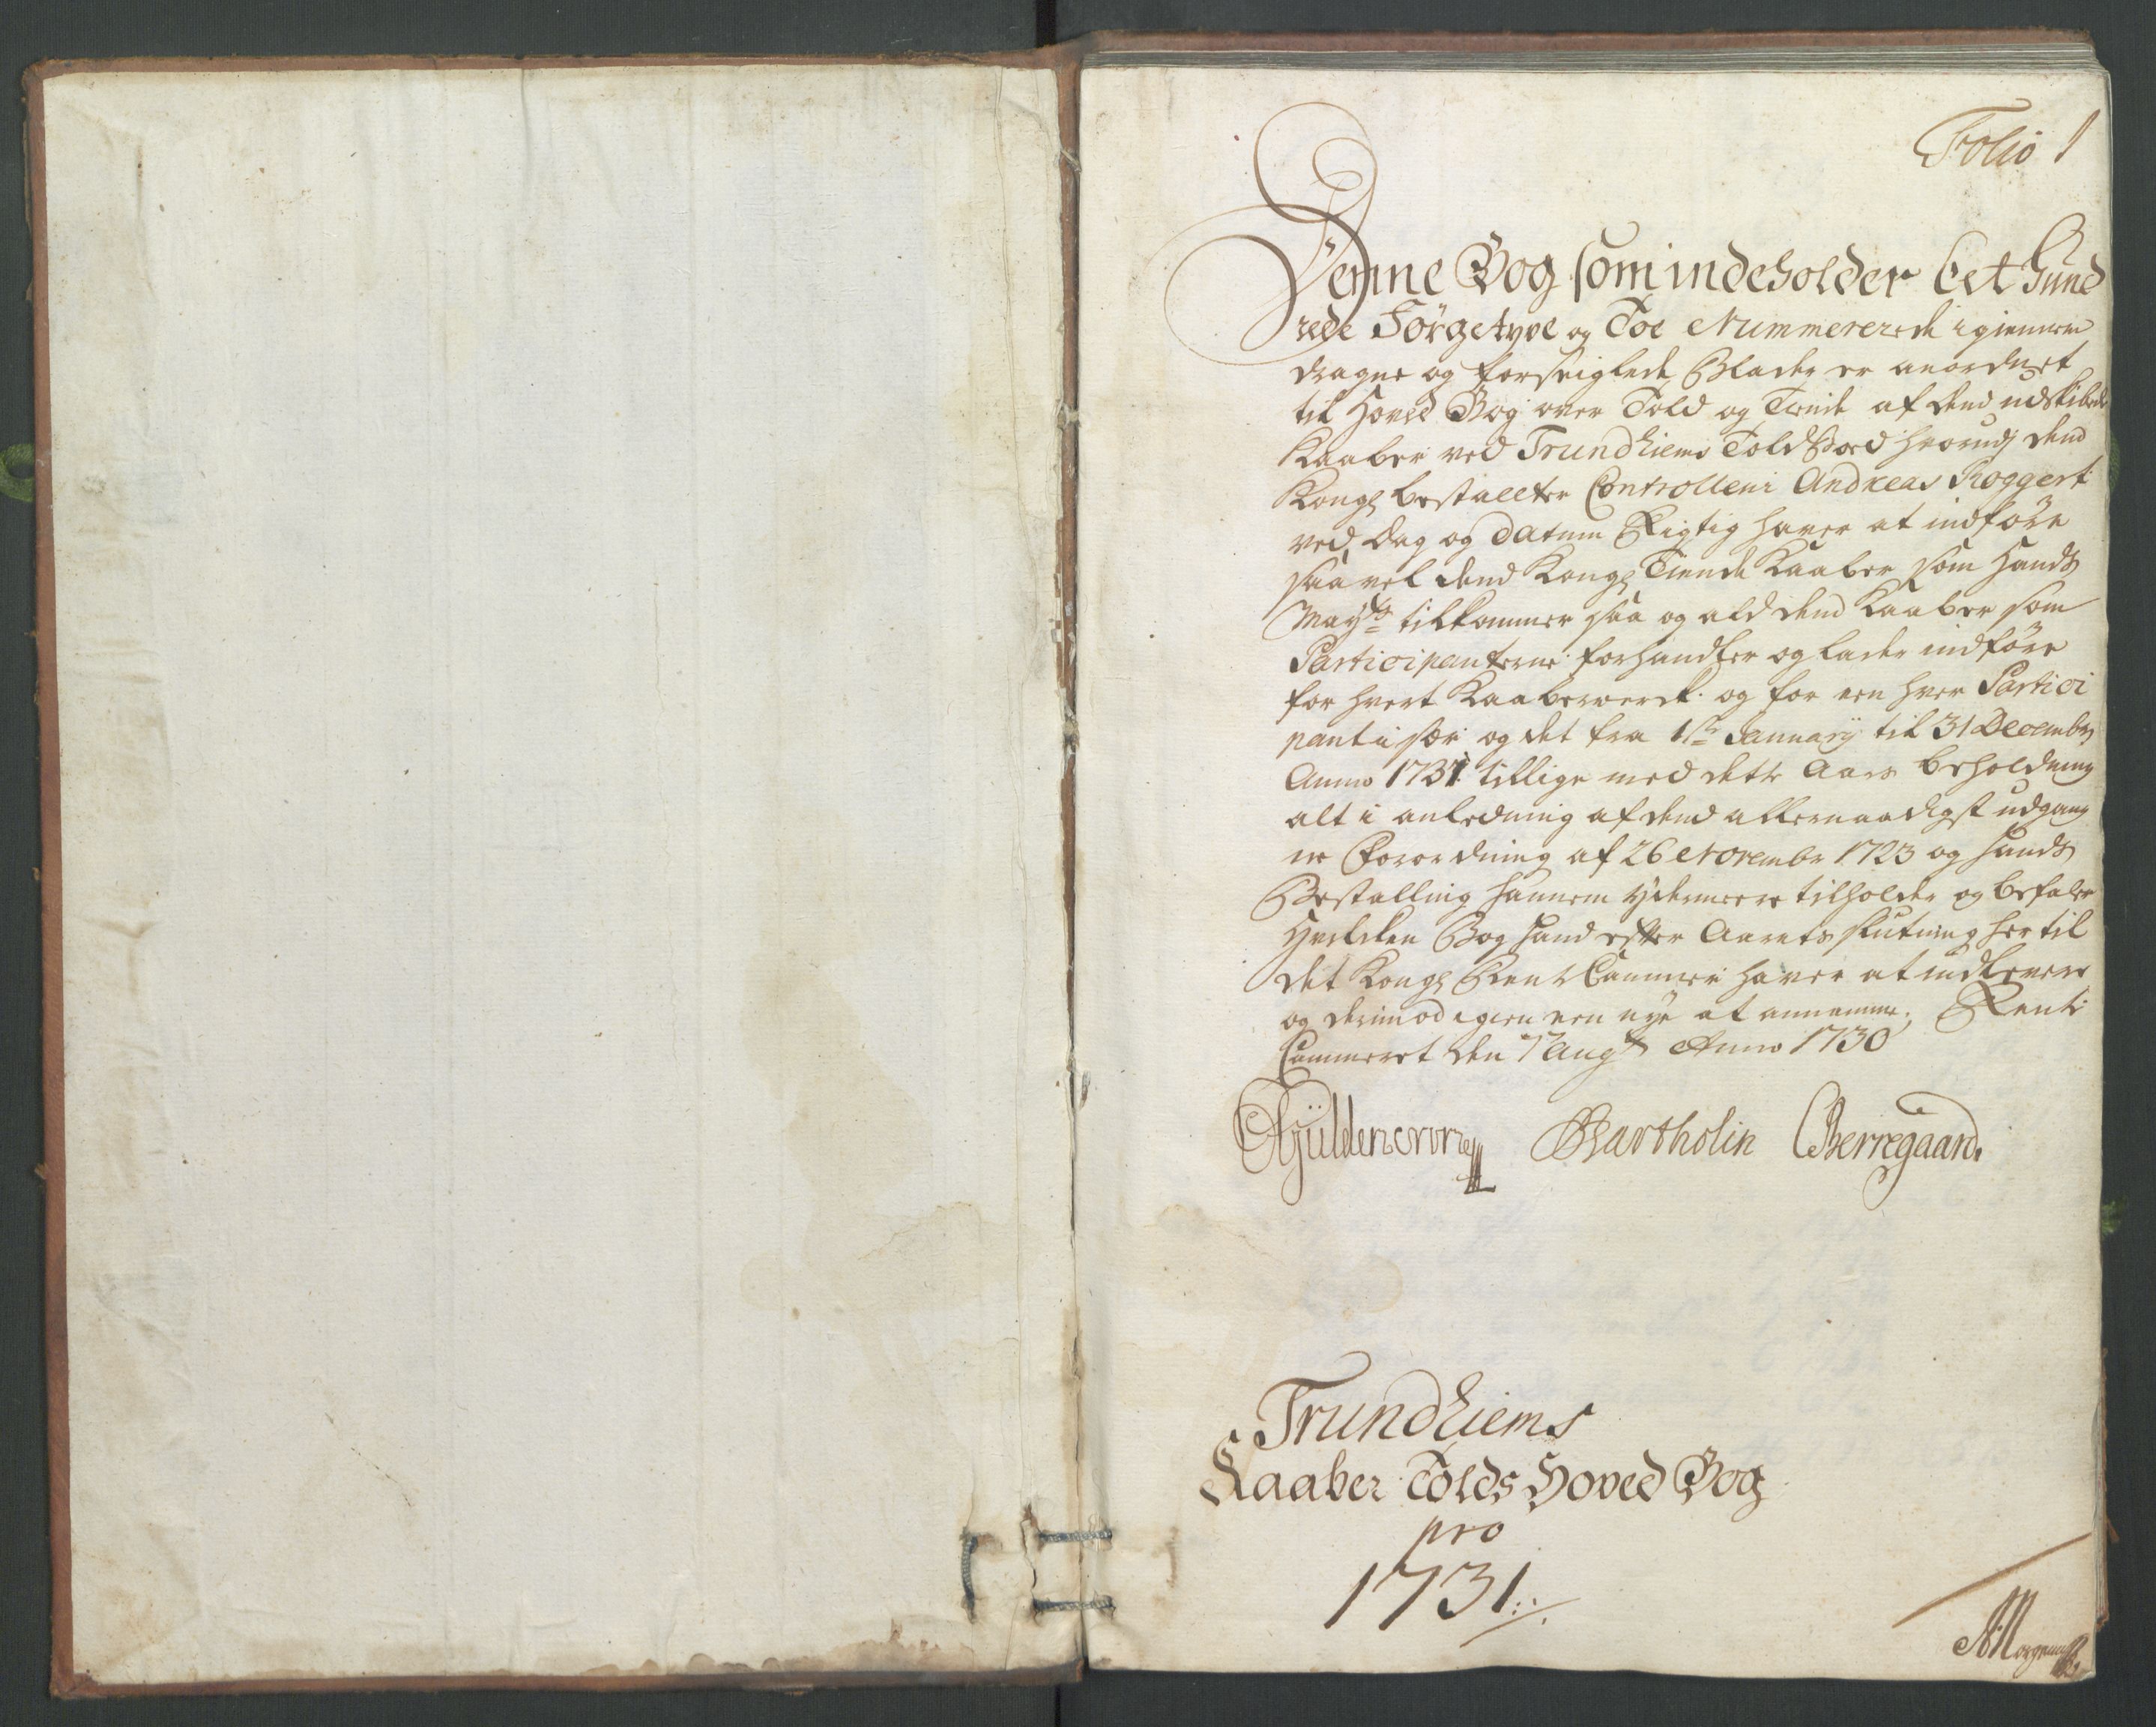 Folio 1
Denne Bog som indeholder Eet Hund
redeFörgetyve og Toe Nummererede igiennem
dragne og forseiglede Blader er anordnet
til Hoved Bog over Told og Tiende af dend udskibede
Kaaber ved Trundhiems Told Boed hvorudj dend
Kongl bestallter Controlleur Andreas Roggert
ved Dag og Datum Rigtig haver at indföre
saa vel dend Kongl Tiende Kaaber som Hands
Mayts tilkommer saa og ald dend Kaaber som
Participanterne forhandler og lader indföre
for hvert Kaaberverck og for een hver Partici
pant i sær og det fra 1ste Januarij til 31 Decembr
Anno 1731 tillige med dette Aars beholdning
alt i anledning af dend allernaadigst udgang
ne Forordning af 26 Novembr 1723 og hands
Bestalling hannem ydermeere tilholder og befaler
Hvilcken Bog hand efter Aarets slutning her til
det Kongl Rente Cammer haver at indlevere
og derimod igien een nye at annamme, Rente
Cammeret den 7 Augt Anno 1730
Gÿldencrone Bartholin CBerregaard.
Trundhiems
Kaaber Tolds Hoved Bog
pro
1731